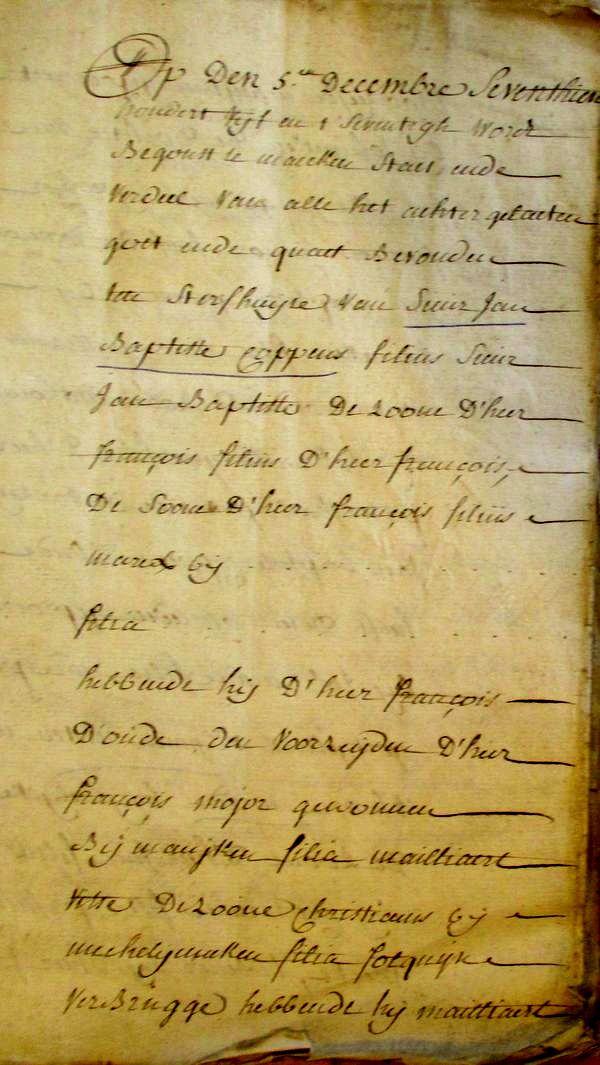 Op Den 5.en Decembre Seventhien
hondert vijf en t'Seventigh Word
Begonst te maecken Staet ende
Verdeel Van alle het achter gelaeten
goet ende quaet Bevonden
ten Sterfhuyse Van Sieur Jan
Baptiste Coppens filius Sieur
Jan Baptiste De Zoone D'heer
françois filius D'heer françois,
De Soone D'heer françois filius
marcx bij . . . .
filia . . . .
hebbende hij D'heer françois
D'oude den Voorzeijden D'heer
françois major gewonnen
Bij maijken filia mailliaert
Vette De Zoone Christiaens bij
michelymeken filia Jolquijn
VerBrugge hebbende hij mailliaert